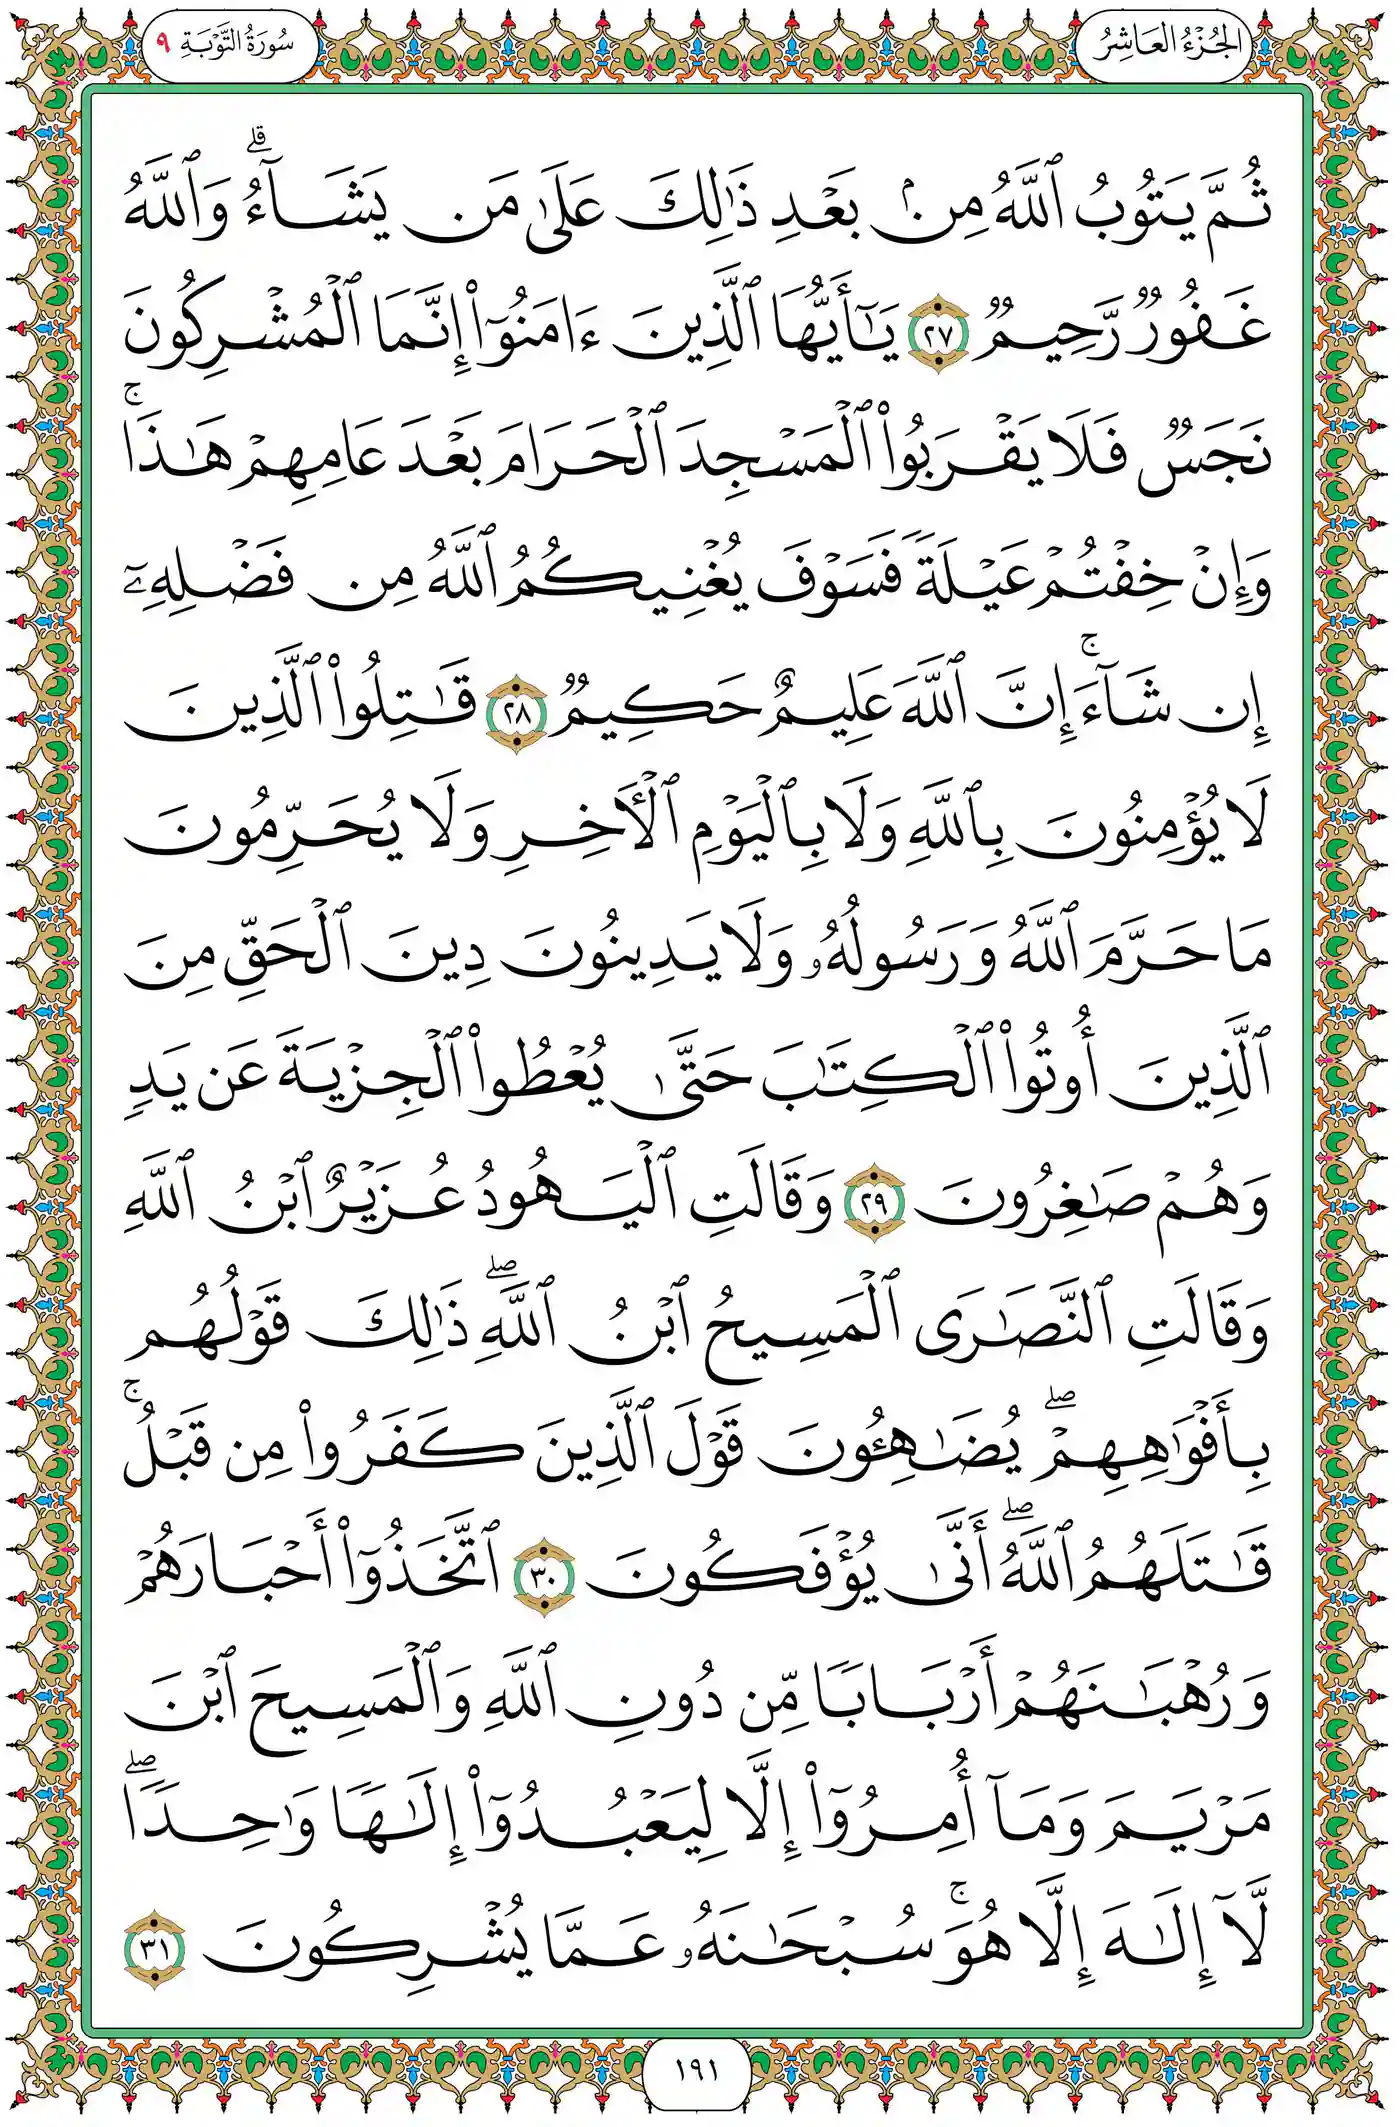 الجُزْءُ العَاشِرُ
سُورَةُ التَّوْبَةِ ٩
ثُمَّ يَتُوبُ ٱللَّهُ مِنۢ بَعْدِ ذَٰلِكَ عَلَىٰ مَن يَشَآءُۗ وَٱللَّهُ
غَفُورٌ رَّحِيمٌ ٢٧ يَٰٓأَيُّهَا ٱلَّذِينَ ءَامَنُوٓاْ إِنَّمَا ٱلْمُشْرِكُونَ
نَجَسٌ فَلَا يَقْرَبُواْ ٱلْمَسْجِدَ ٱلْحَرَامَ بَعْدَ عَامِهِمْ هَٰذَاۚ
وَإِنْ خِفْتُمْ عَيْلَةً فَسَوْفَ يُغْنِيكُمُ ٱللَّهُ مِن فَضْلِهِۦٓ
إِن شَآءَۚ إِنَّ ٱللَّهَ عَلِيمٌ حَكِيمٌ ٢٨ قَٰتِلُواْ ٱلَّذِينَ
لَا يُؤْمِنُونَ بِٱللَّهِ وَلَا بِٱلْيَوْمِ ٱلْأَخِرِ وَلَا يُحَرِّمُونَ
مَا حَرَّمَ ٱللَّهُ وَرَسُولُهُۥ وَلَا يَدِينُونَ دِينَ ٱلْحَقِّ مِنَ
ٱلَّذِينَ أُوتُواْ ٱلْكِتَٰبَ حَتَّىٰ يُعْطُواْ ٱلْجِزْيَةَ عَن يَدٍ
وَهُمْ صَٰغِرُونَ ٢٩ وَقَالَتِ ٱلْيَهُودُ عُزَيْرٌ ٱبْنُ ٱللَّهِ
وَقَالَتِ ٱلنَّصَٰرَى ٱلْمَسِيحُ ٱبْنُ ٱللَّهِۖ ذَٰلِكَ قَوْلُهُم
بِأَفْوَٰهِهِمْۖ يُضَٰهِـُٔونَ قَوْلَ ٱلَّذِينَ كَفَرُواْ مِن قَبْلُۚ
قَٰتَلَهُمُ ٱللَّهُۖ أَنَّىٰ يُؤْفَكُونَ ٣٠ ٱتَّخَذُوٓاْ أَحْبَارَهُمْ
وَرُهْبَٰنَهُمْ أَرْبَابًا مِّن دُونِ ٱللَّهِ وَٱلْمَسِيحَ ٱبْنَ
مَرْيَمَ وَمَآ أُمِرُوٓاْ إِلَّا لِيَعْبُدُوٓاْ إِلَٰهًا وَٰحِدًاۖ
لَّآ إِلَٰهَ إِلَّا هُوَۚ سُبْحَٰنَهُۥ عَمَّا يُشْرِكُونَ ٣١
١٩١